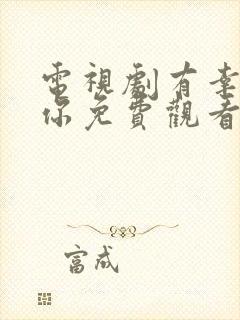 電視劇有幸
你免費觀看
富成